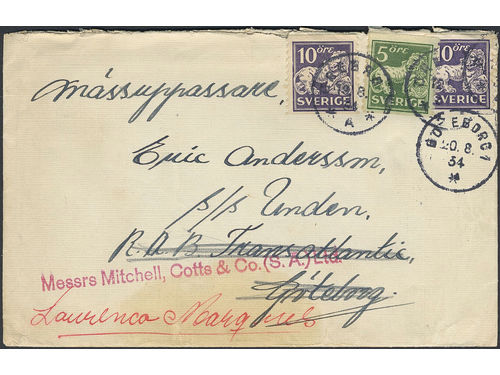 10 ÖRE SVERIGE
5 ÖRE SVERIGE
10 ÖRE SVERIGE
GÖTEBORG 1
20.8.
34
Mässuppassare,
Eric Andersson,
s/s Unden,
R.A.B. Transatlantic,
Messrs Mitchell, Cotts & Co. (S. A.) Ltd.
Göteborg.
Laurenco Marques